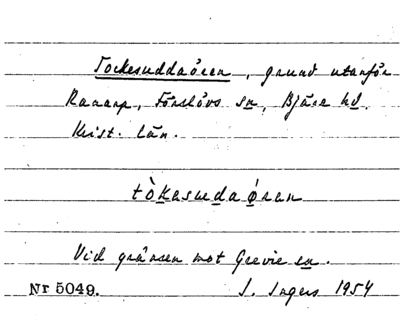 Tockesuddaören, grund utanför
Ranarp, Förslövs sn, Bjäre hd.
Krist. län.
tòkasudaǿran
Vid gränsen mot Grevie sn.
Nr 5049. I. Ingers 1954